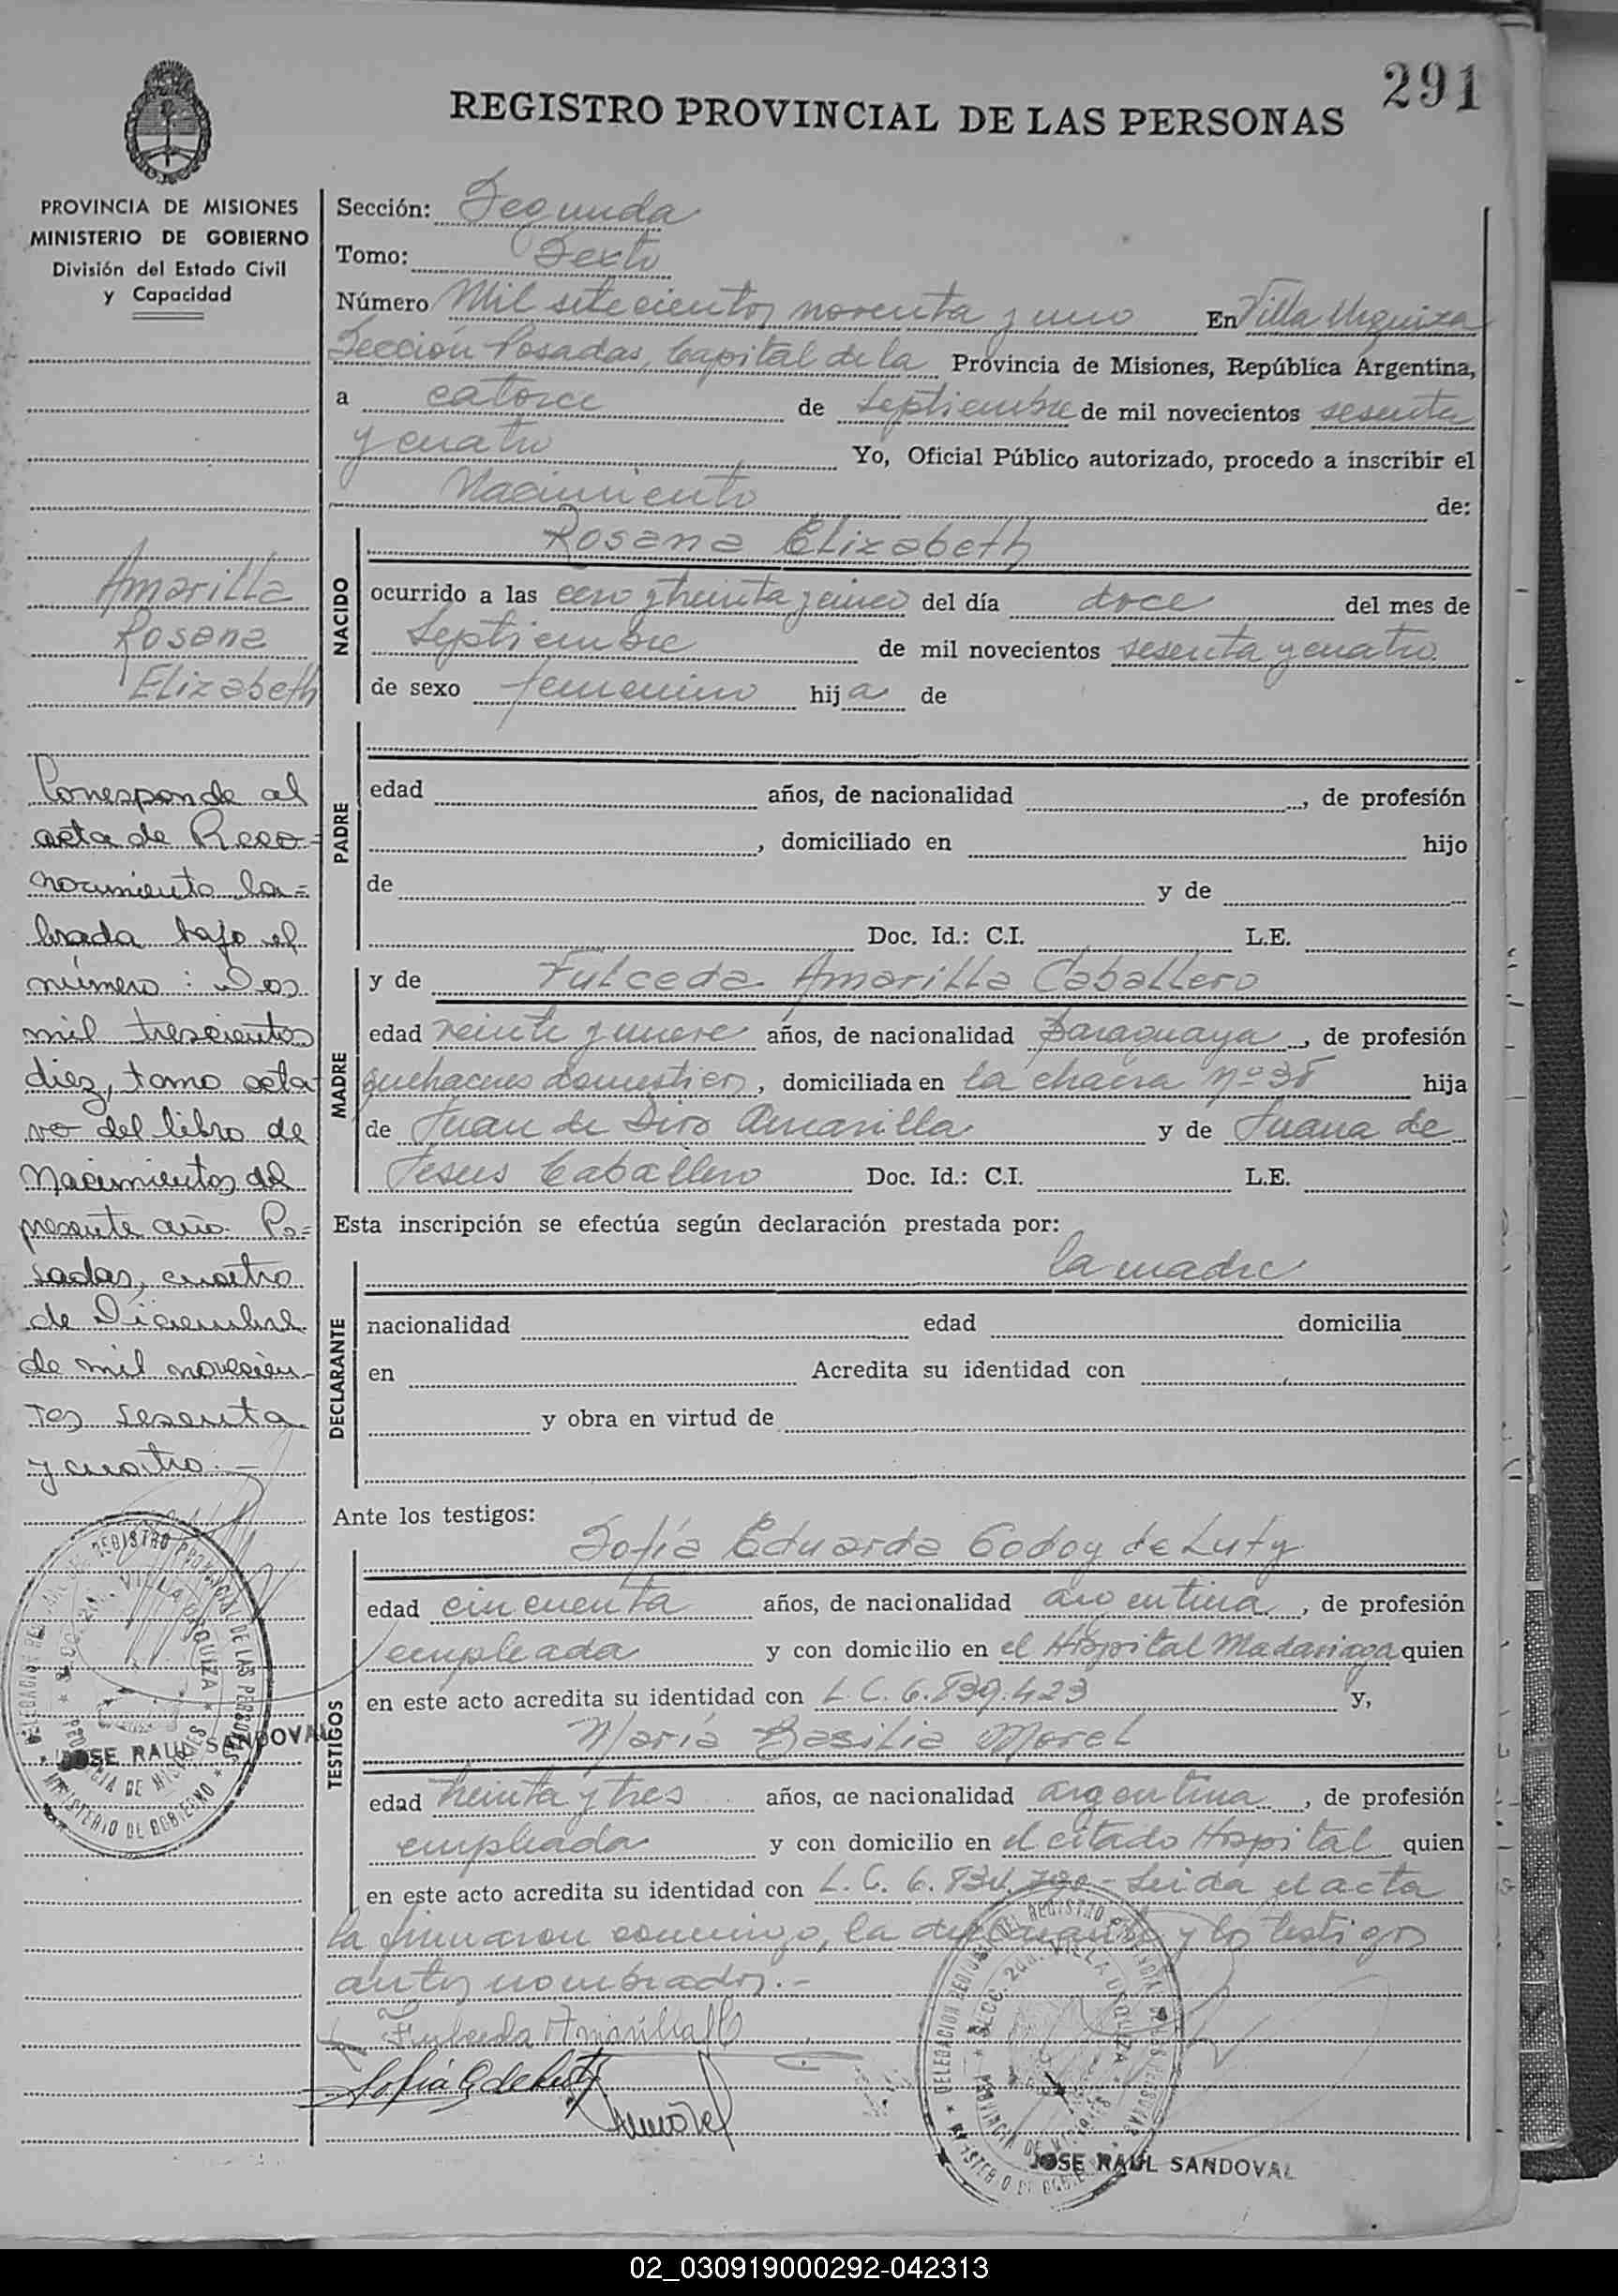 291
REGISTRO PROVINCIAL DE LAS PERSONAS
PROVINCIA DE MISIONES
MINISTERIO DE GOBIERNO
División del Estado Civil
y Capacidad
Amarilla
Rosana
Elizabeth
Corresponde al
acta de Reco-
nocimiento la=
brada bajo el
número: Dos
mil trescientos
diez, tomo octa
vo del libro de
Nacimientos del
presente año. Po=
sadas, cuatro
de Diciembre
de mil novecien-
tos sesenta
y cuatro.-
Sección: Segunda
Tomo: Sexto
Número Mil setecientos noventa y uno En Villa Urquiza
Sección Posadas, Capital de la Provincia de Misiones, República Argentina,
a catorce de Septiembre de mil novecientos sesenta
y cuatro Yo, Oficial Público autorizado, procedo a inscribir el
Nacimiento de:
NACIDO
Rosana Elizabeth
ocurrido a las cero y treinta y cinco del día doce del mes de
Septiembre de mil novecientos sesenta y cuatro
de sexo femenino hija de
PADRE
edad años, de nacionalidad , de profesión
, domiciliado en hijo
de y de
Doc. Id.: C.I. L.E.
MADRE
y de Fulceda Amarilla Caballero
edad veinte y nueve años, de nacionalidad paraguaya, de profesión
quehaceres domesticos, domiciliada en la chacra Nº 38 hija
de Juan de Dios Amarilla y de Juana de
Jesus Caballero Doc. Id.: C.I. L.E.
Esta inscripción se efectúa según declaración prestada por:
DECLARANTE
la madre
nacionalidad edad domicilia
en Acredita su identidad con
y obra en virtud de
Ante los testigos:
TESTIGOS
Sofía Eduarda Godoy de Luty
edad cincuenta años, de nacionalidad argentina, de profesión
empleada y con domicilio en el Hospital Madariaga quien
en este acto acredita su identidad con L.C. 6.839.423 y,
María Basilia Morel
edad treinta y tres años, de nacionalidad argentina, de profesión
empleada y con domicilio en el citado Hospital quien
en este acto acredita su identidad con L.C. 6. - Leida el acta
la firmaron conmigo, la declarante y los testigos
antes nombrados.-
Fulceda Amarilla C
Sofia G de Luty
Morel
DELEGACION DEL REGISTRO PROVINCIAL DE LAS PERSONAS
SECC. 2da. VILLA URQUIZA
PROVINCIA DE MISIONES
MINISTERIO DE GOBIERNO
JOSE RAUL SANDOVAL
DEL REGISTRO PROVINCIAL DE LAS PERSONAS
SECC. 2da. VILLA URQUIZA
PROVINCIA DE MISIONES
MINISTERIO DE GOBIERNO
JOSE RAUL SANDOVAL
02_030919000292-042313